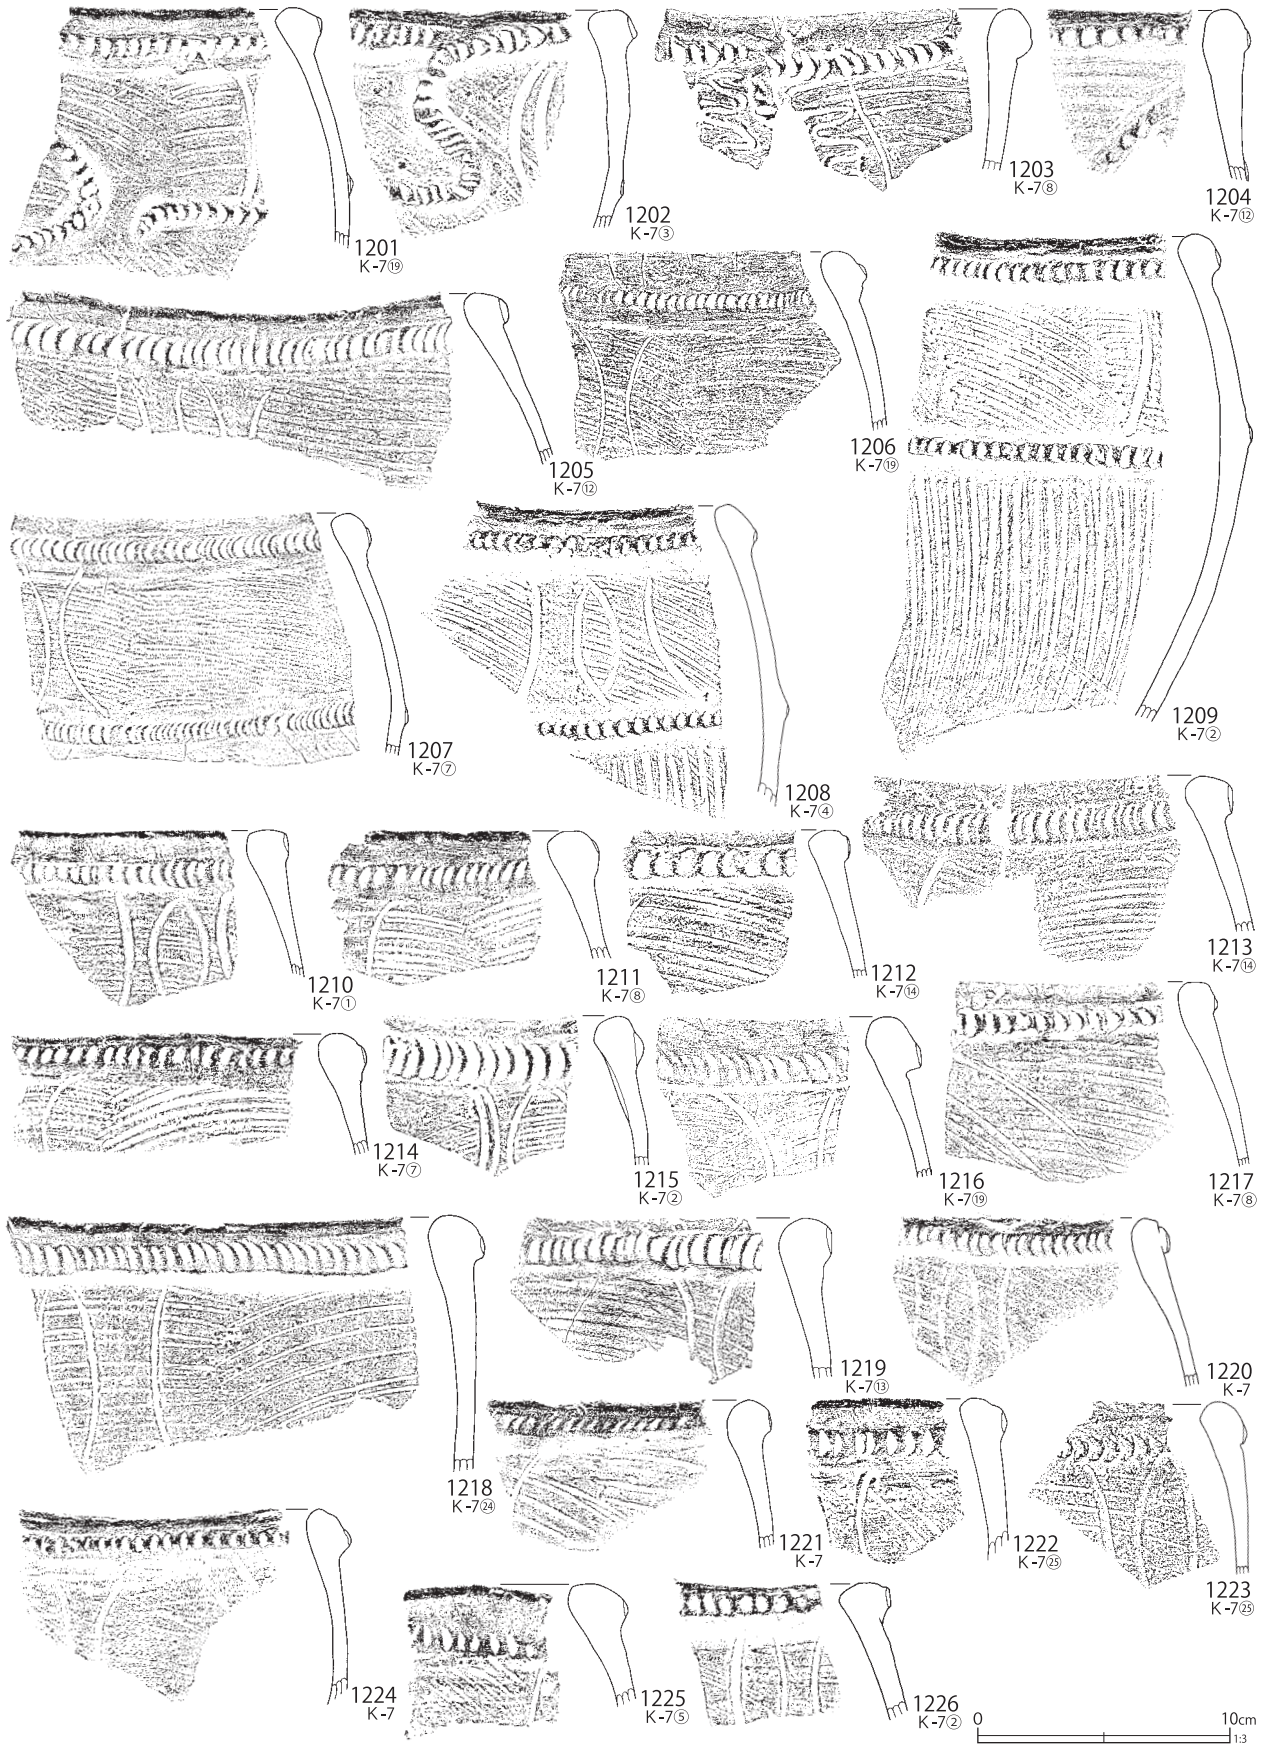 1201
K-7⑲
1202
K-7③
1203
K-7⑧
1204
K-7⑫
1205
K-7⑫
1206
K-7⑲
1207
K-7⑦
1208
K-7④
1209
K-7②
1210
K-7①
1211
K-7⑧
1212
K-7⑭
1213
K-7⑭
1214
K-7⑦
1215
K-7②
1216
K-7⑲
1217
K-7⑧
1218
K-7㉔
1219
K-7⑬
1220
K-7
1221
K-7
1222
K-7㉕
1223
K-7㉕
1224
K-7
1225
K-7⑤
1226
K-7②
0 10cm
1:3